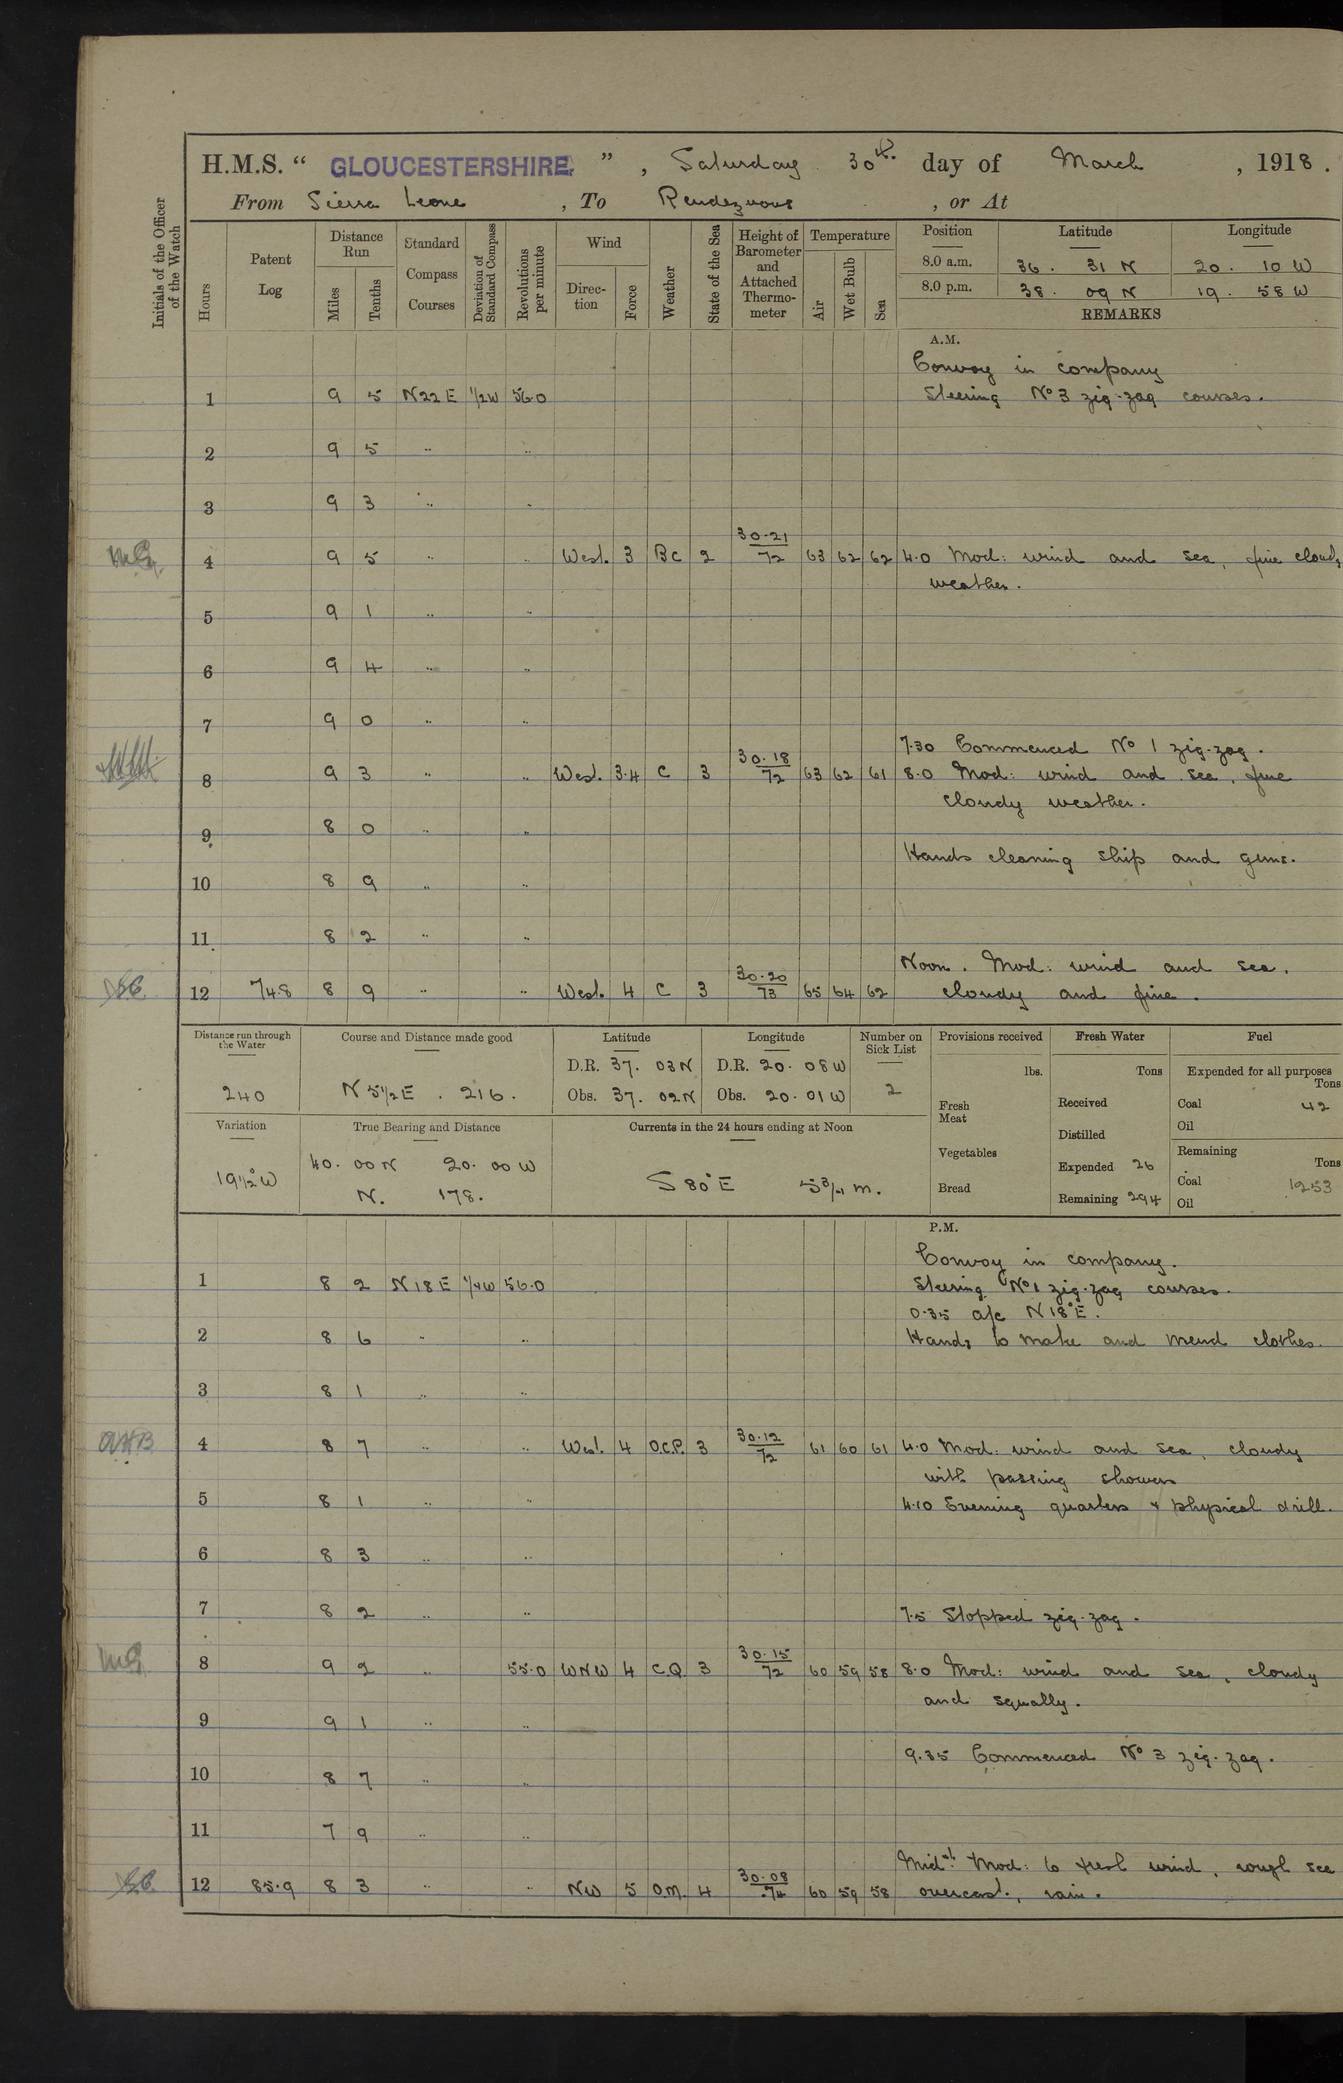 H.M.S. “ GLOUCESTERSHIRE. ” , Saturday 30th. day of March , 1918 .
From Sierra Leone , To Rendezvous , or At
Initials of the Officer of the Watch
Hours
Patent Log
Distance Run
Miles
Tenths
Standard Compass Courses
Deviation of Standard Compass
Revolutions per minute
Wind
Direction
Force
Weather
State of the Sea
Height of Barometer and Attached Thermometer
Temperature
Air
Wet Bulb
Sea
Position Latitude Longitude
8.0 a.m. 36 . 31 N 20 . 10 W
8.0 p.m. 38 . 09 N 19 . 58 W
REMARKS
A.M.
Convoy in company
1 9 5 N22E 1/2W 56.0 Steering No 3 zig-zag courses.
2 9 5 " "
3 9 3 " "
4 9 5 " " West. 3 BC 2 30.21/72 63 62 62 4.0 Mod: wind and sea, fine cloudy
weather.
5 9 1 " "
6 9 4 " "
7 9 0 " "
7.30 Commenced No 1 zig-zag.
8 9 3 " " West. 3.4 C 3 30.18/72 63 62 61 8.0 Mod: wind and sea, fine
cloudy weather.
9 8 0 " "
Hands cleaning ship and guns.
10 8 9 " "
11 8 2 " "
Noon. Mod: wind and sea.
12 74.8 8 9 " " West. 4 C 3 30.20/73 65 64 62 cloudy and fine.
Distance run through the Water
240
Course and Distance made good
N 5 1/2 E . 216 .
Latitude
D.R. 37. 03 N
Obs. 37. 02 N
Longitude
D.R. 20. 08 W
Obs. 20. 01 W
Number on Sick List
2
Provisions received
lbs.
Fresh Meat
Vegetables
Bread
Fresh Water
Tons
Received
Distilled
Expended 26
Remaining 294
Fuel
Expended for all purposes
Tons
Coal 42
Oil
Remaining
Tons
Coal 1253
Oil
Variation
19 1/2° W
True Bearing and Distance
40. 00 N 20. 00 W
N. 178.
Currents in the 24 hours ending at Noon
S 80° E 5 3/4 m.
P.M.
Convoy in company.
1 8 2 N18E 1/4W 56.0 Steering No 1 zig-zag courses.
0.35 a/c N 18° E.
2 8 6 " " Hands to make and mend clothes.
3 8 1 " "
4 8 7 " " West. 4 O.C.P. 3 30.12/72 61 60 61 4.0 Mod: wind and sea, cloudy
with passing showers
5 8 1 " " 4.10 Evening quarters & physical drill.
6 8 3 " "
7 8 2 " " 7.5 Stopped zig-zag.
8 9 2 " 55.0 WNW 4 C.Q. 3 30.15/72 60 59 58 8.0 Mod: wind and sea, cloudy
and squally.
9 9 1 " "
9.35 Commenced No 3 zig-zag.
10 8 7 " "
11 7 9 " "
Midnt. Mod: to fresh wind, rough sea
12 85.9 8 3 " " NW 5 O.M. 4 30.08/74 60 59 58 overcast, rain.